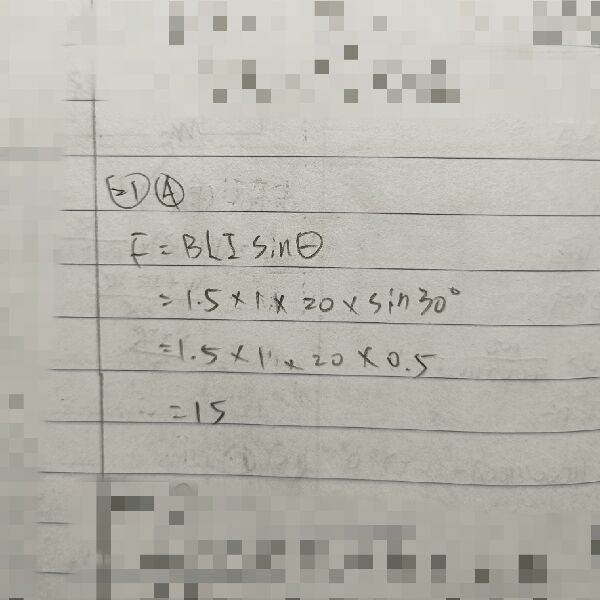 ④
F = BLI sinθ
= 1.5 × 1 × 20 × sin30°
= 1.5 × 1 × 20 × 0.5
= 15